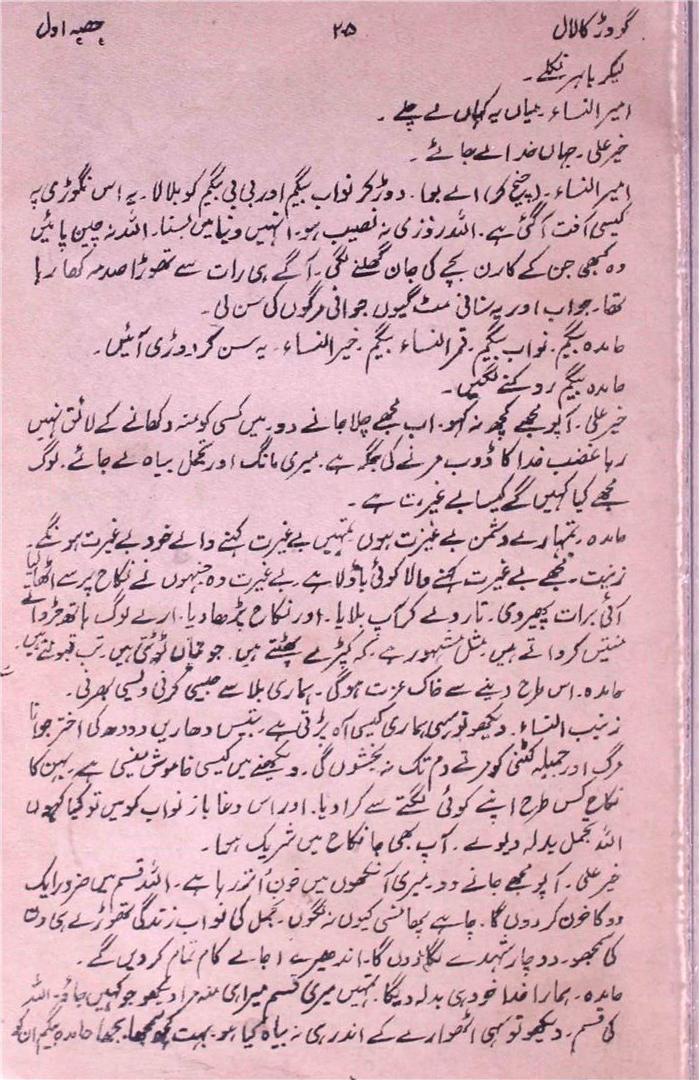 گودڑ کا لال ۲۵ حصہ اول
لیکر باہر نکلے۔
امیر النساء۔ میاں یہ کہاں لے چلے۔
خیر علی۔ جہاں خدا لے جائے۔
امیر النساء۔ (چیخ کر) اے بوا۔ دوڑ کر نواب بیگم اور بی بی بیگم کو بلا لا۔ یہ اس نگوڑی پہ
کیسی آفت آ گئی ہے۔ اللہ روزی نہ نصیب ہو۔ انہیں دنیا میں بسنا۔ اللہ نہ چین پائیں
وہ کبھی جن کے کارن بچے کی جان گھلنے لگی۔ آگے ہی رات سے تھوڑا صدمہ کھا رہا
تھا۔ جو اب اور یہ سنانی مٹ گیوں جوانی مرگوں کی سن لی۔
حامدہ بیگم۔ نواب بیگم۔ قمر النساء بیگم۔ خیر النساء۔ یہ سن کر دوڑی آئیں۔
حامدہ بیگم روکنے لگیں۔
خیر علی۔ آپو مجھے کچھ نہ کہو۔ اب مجھے چلا جانے دو۔ میں کسی کو منہ دکھانے کے لائق نہیں
رہا غضب خدا کا ڈوب مرنے کی جگہ ہے۔ میری مانگ اور تجمل بیاہ لے جائے۔ لوگ
مجھے کیا کہیں گے کیسا بے غیرت ہے۔
حامدہ۔ تمہارے دشمن بے غیرت ہوں تمہیں بے غیرت کہنے والے خود بے غیرت ہونگے۔
زینت۔ تجھے بے غیرت کہنے والا کوئی باؤلا ہے۔ بے غیرت وہ جنہوں نے نکاح پر سے اٹھا لیا
آئی برات پھیر دی۔ تار دے کر آپ بلایا۔ اور نکاح پڑھا دیا۔ ارے لوگ ہاتھ جڑواتے
منتیں کرواتے ہیں۔ مثل مشہور ہے۔ کہ کپڑے پھٹتے ہیں۔ جوتیاں ٹوٹتی ہیں۔ تب قبولتے ہیں۔
حامدہ۔ اس طرح دینے سے خاک عزت ہو گی۔ ہماری بلا سے جیسی کرنی ویسی بھرنی۔
زینب النساء۔ دیکھو تو سہی ہماری کیسی آہ پڑتی ہے۔ بتیس دھاریں دودھ کی اختر جوانا
مرگ اور جمیلہ کٹنی کو مرتے دم تک نہ بخشوں گی۔ دیکھنے میں کیسی خاموش یعنی ہے۔ بہن کا
نکاح کس طرح اپنے کوئی لگتے سے کرا دیا۔ اور اس دغا باز نواب کو میں تو کیا کہوں
اللہ تجمل بدلہ دیوے۔ آپ بھی جا نکاح میں شریک ہوا۔
خیر علی۔ آپو مجھے جانے دو۔ میری آنکھوں میں خون اُتر رہا ہے۔ اللہ قسم میں ضرور ایک
دو کا خون کر دوں گا۔ چاہے پھانسی کیوں نہ لگوں۔ تجمل کی تو اب زندگی تھوڑے ہی دن
کی سمجھو۔ دو چار شہدے لگا دوں گا۔ اندھیرے اجالے کام تمام کر دیں گے۔
حامدہ۔ ہمارا خدا خود ہی بدلہ دیگا۔ تمہیں میری قسم میرا ہی مردہ دیکھو جو کہیں جاؤ۔ اللہ
کی قسم۔ دیکھو تو سہی اٹھوارے کے اندر ہی نہ بیاہ کیا ہو۔ بہت کچھ سمجھا بجھا حامدہ بیگم ان کو